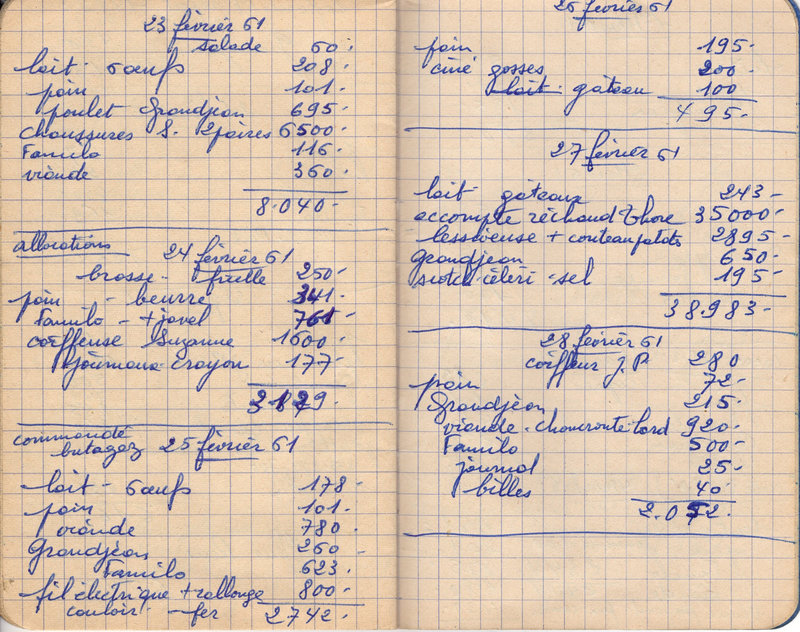 23 février 61
salade 60.
lait - 6 œufs 208.
pain 101.
poulet Grandjean 695.
chaussures S. 2 paires 6500.
Familo 116.
viande 360.
8.040-
allocations
24 février 61
brosse - ficelle 250-
pain - beurre 341.
Familo - + javel 761.
coiffeuse Suzanne 1600.
journaux crayon 177-
3129.
commandé
butagaz 25 février 61
lait - 6 œufs 178-
pain 101.
viande 780.
Grandjean 260 -
Familo 623.
fil électrique + rallonge 800-
couloir - fer 2742-
26 février 61
pain 195-
ciné gosses 200-
lait. gâteau 100
495.
27 février 61
lait gâteaux 243-
accompte réchaud Thore 35000-
lessiveuse + couteau patats 2895-
Grandjean 650-
scotch céleri - sel 195-
38.983-
28 février 61
coiffeur J.P. 280
pain 72-
Grandjean 215-
viande - choucroute - lard 920-
Familo 500-
journal 25-
billes 40.
2.052-